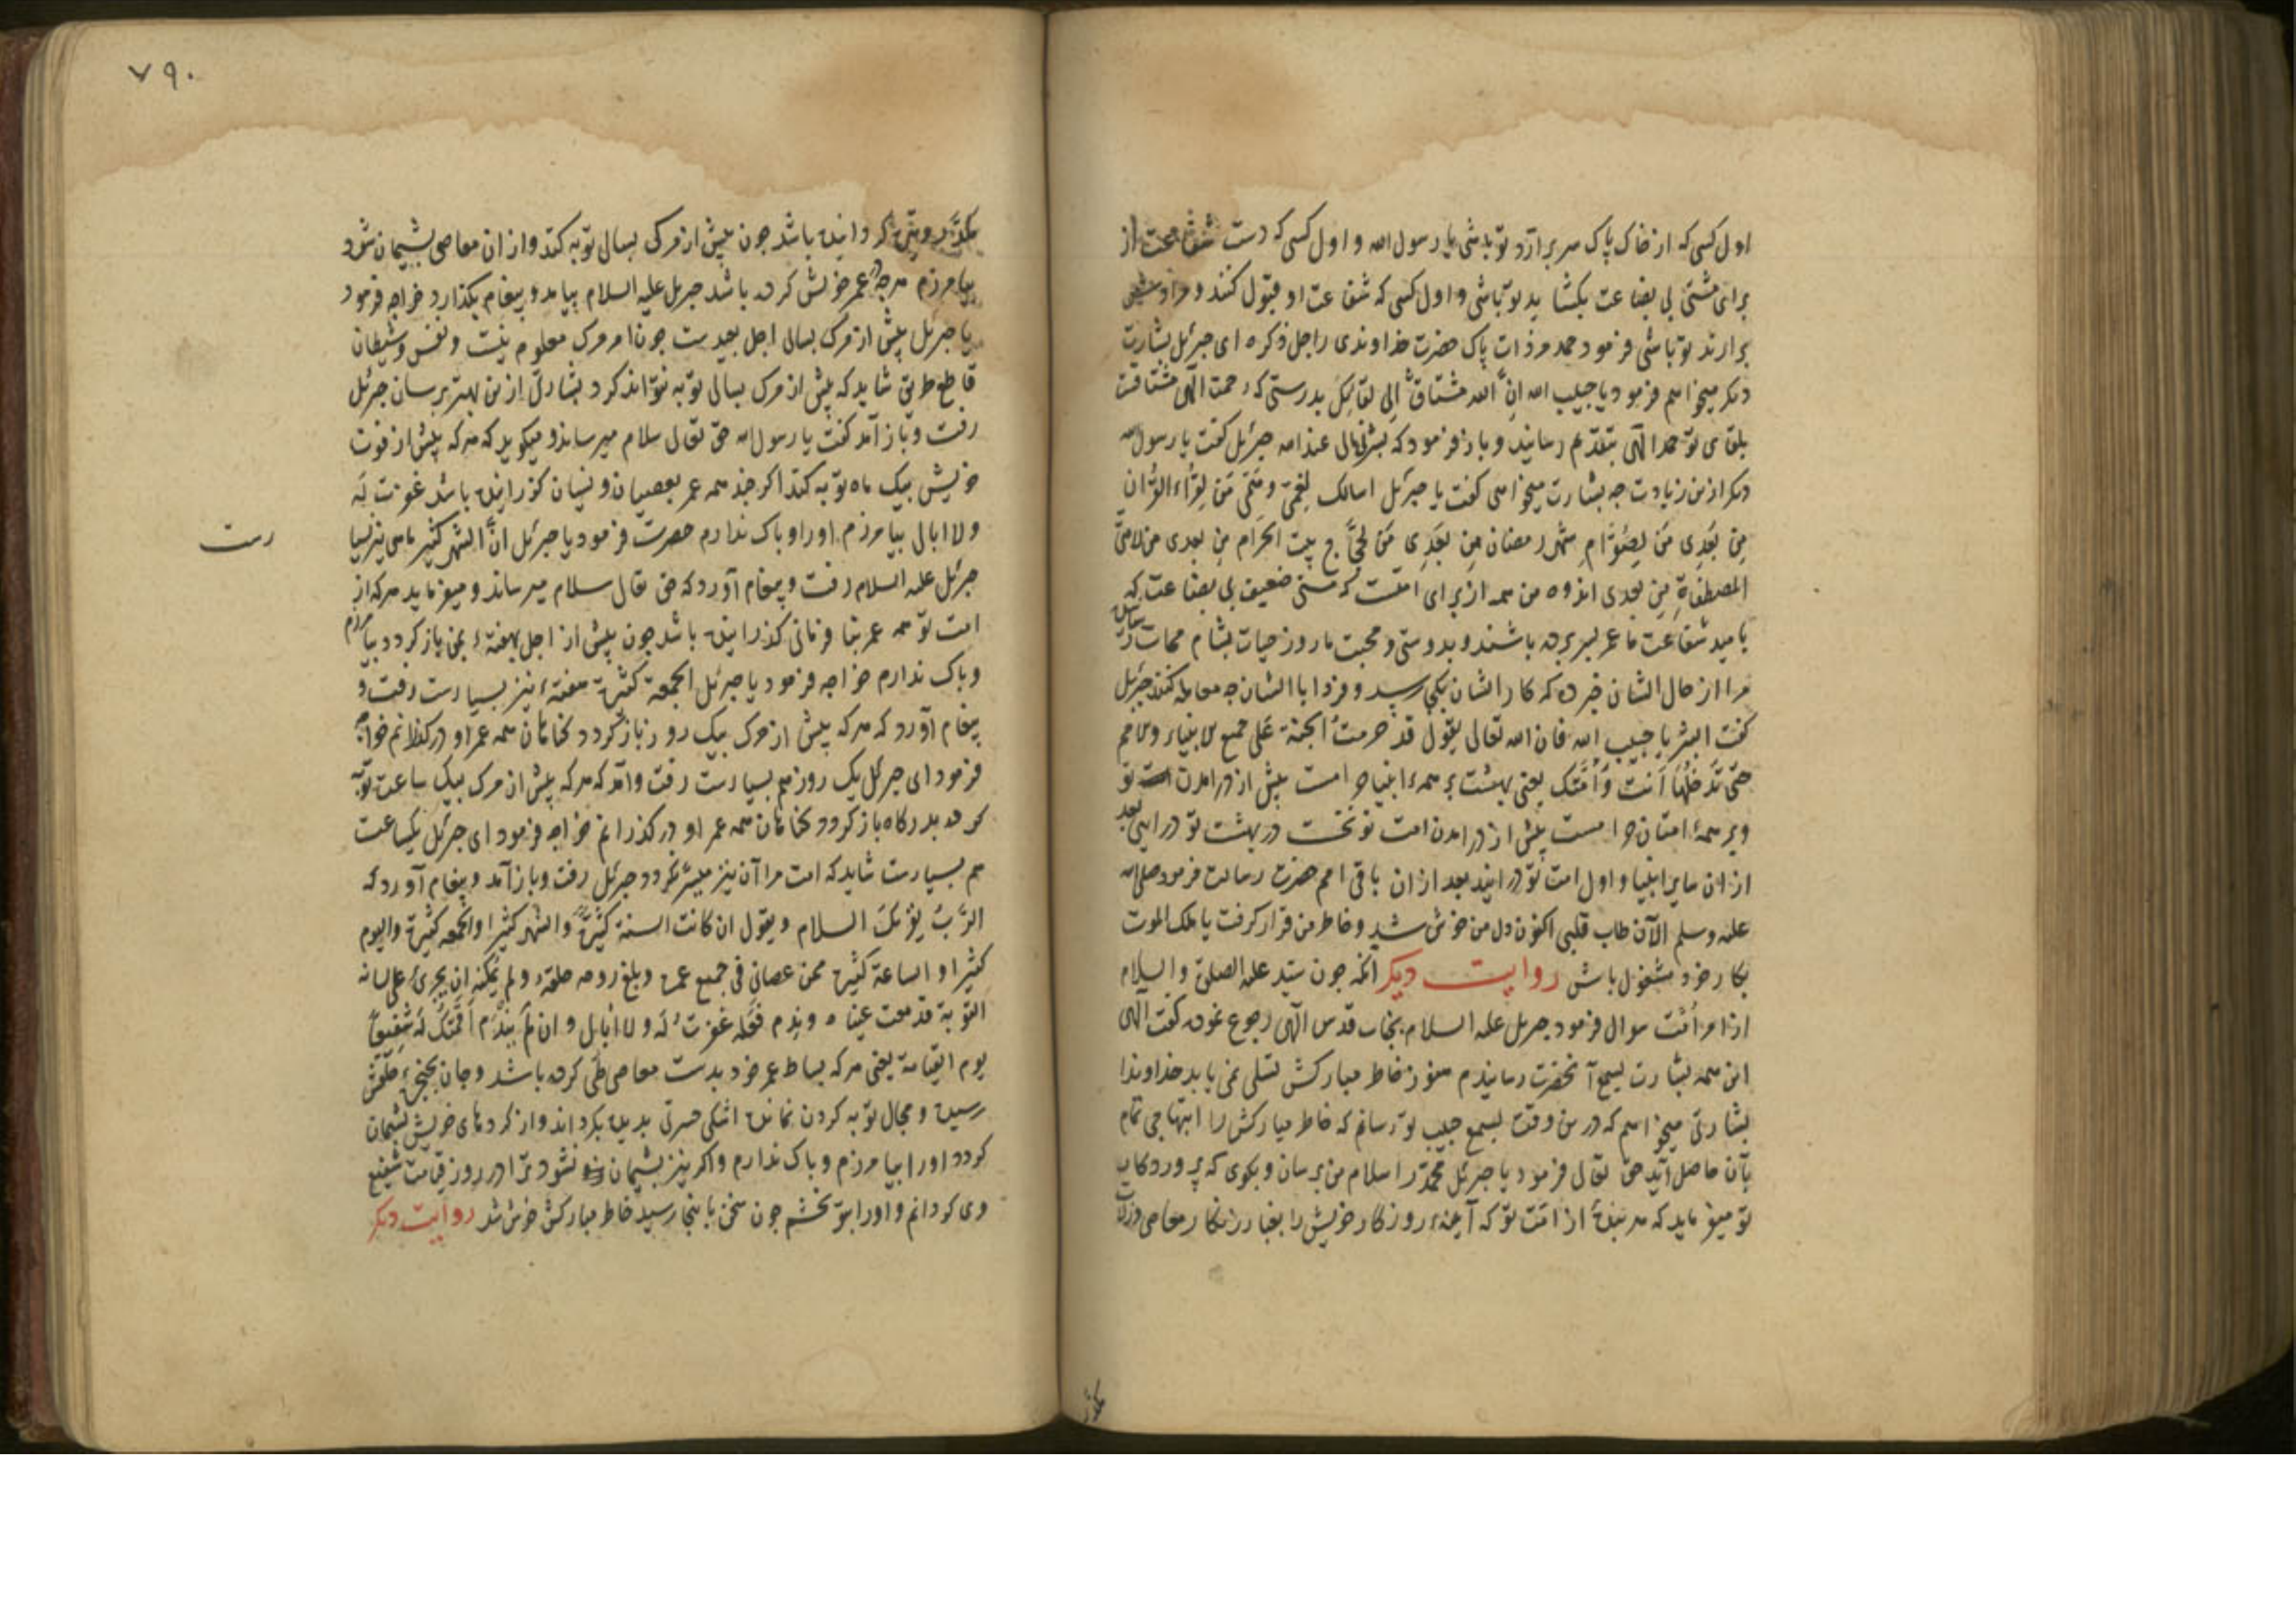 اول کسی که از خاک پاک سر برآرد تو باشی یا رسول الله و اول کسی که دست شفاعت از
برای مشتی بی بضاعت بکشاید تو باشی و اول کسی که شفاعت او قبول کنند و
برارند تو باشی فرمود حمد مر ذات پاک حضرت خداوندی را جل ذکره ای جبرئیل بشارت
دیکر میخواهم فرمود یا حبیب الله ان الله مشتاق الی لقائک بدرستی که رحمت الهی مشتاقست
بلقای تو حمد الهی بتقدیم رسانید و باز فرمود که بشرنی مالی عند الله جبرئیل کفت یا رسول الله
دیکر ازین زیادت جه بشارت میخواهی کفت یا جبرئیل اسالک لغمی و همی من لقراء القران
من بعدی من لصوام شهر رمضان من بعدی من لحجاج بیت الحرام من بعدی من لامتی
المصطفاة من بعدی اندوه من همه از برای امتست که مشتی ضعیف بی بضاعت که
بامید شفاعت ما عمر بسر برده باشند و بدوستی و محبت ما روز حیات بشام ممات رسانیده
مرا از حال ایشان خبر ده که کار ایشان بکجا رسید و فردا با ایشان جه معامله کنند جبرئیل
کفت ابشر یا حبیب الله فان الله تعالی یقول قد حرمت الجنة علی جمیع الانبیاء و الامم
حتی تدخلها انت و امتک یعنی بهشت بر همه انبیا حرامست پیش از درامدن تو
و بر همه امتان حرامست پیش از درامدن امت تو نخست در بهشت تو درایی بعد
از ان سایر انبیا و اول امت تو درایند بعد از ان باقی امم حضرت رسالت فرمود صلی الله
علیه وسلم الآن طاب قلبی اکنون دل من خوش شد و خاطر من قرار کرفت یا ملک الموت
بکار خود مشغول باش روایت دیکر انکه جون سید علیه الصلوة والسلام
از امر امت سوال فرمود جبریل علیه السلام بجناب قدس الهی رجوع نموده کفت الهی
این همه بشارت بسمع آنحضرت رسانیدم هنوز خاطر مبارکش تسلی نمی یابد خداوندا
بشارتی میخواهم که درین وقت بسمع حبیب تو رسانم که خاطر مبارکش را ابتهاجی تمام
بآن حاصل آید حق تعالی فرمود یا جبرئیل محمد را سلام من برسان و بکوی که پروردکار
تو میفرماید که هر بنده از امت تو که آینه روزکار خویش را بغبار زنکار معاصی و زلات
مکدر
۷۹۰
مکدر و تیره کردانیده باشد جون پیش از مرک بسالی توبه کند و از ان معاصی پشیمان شود
بیامرزم هرچه در عمر خویش کرده باشد جبریل علیه السلام بیامد و پیغام بکذارد خواجه فرمود
یا جبرئیل پیش از مرک بسالی اجل بعیدست جون امر مرک معلوم نیست و نفس و شیطان
قاطع طریق شاید که پیش از مرک بسالی توبه نتواند کرد بشارتی ازین بهتر برسان جبرئیل
رفت و باز آمد کفت یا رسول الله حق تعالی سلام میرساند و میکوید که هرکه پیش از فوت
خویش بیک ماه توبه کند اکر جند همه عمر بعصیان و نسیان کذرانیده باشد غفرت له
ولا ابالی بیامرزم او را و باک ندارم حضرت فرمود یا جبرئیل ان الشهر کثیر ماهی نیز بسیا
رست
جبرئیل علیه السلام رفت و پیغام آورد که حق تعالی سلام میرساند و میفرماید هرکه از
امت تو همه عمر بنافرمانی کذرانیده باشد جون پیش از اجل بهفتهٔ بمن باز کردد بیامرزم
و باک ندارم خواجه فرمود یا جبرئیل الجمعة کثیرة هفتهٔ نیز بسیارست رفت و
پیغام آورد که هرکه پیش از مرک بیک روز باز کردد کناهان همه عمر او درکذرانم خواجه
فرمود ای جبرئیل یک روز هم بسیارست رفت و آمد که هرکه پیش از مرک بیک ساعت توبه
کرده بدرکاه باز کردد کناهان همه عمر او درکذرانم خواجه فرمود ای جبرئیل یکساعت
هم بسیارست شاید که امت مرا آن نیز میسر نکردد جبرئیل رفت و باز آمد و پیغام آورد که
الرب یقرئک السلام و یقول ان کانت السنة کثیرة والشهر کثیرا والجمعة کثیرة والیوم
کثیرا والساعة کثیرة فمن عصانی فی جمیع عمره و بلغ روحه حلقه و لم یمکنه ان یجری علی لسانه
التوبة قد دمعت عیناه وندم فعله غفرت له ولا ابالی وان لم یندم اقمتک له شفیعا
یوم القیامة یعنی هرکه بساط عمر خود بدست معاصی طی کرده باشد و جان بحنجرهٔ حلقش
رسیده و مجال توبه کردن نمانده اشکی حسرتی بدیده بکرداند و از کردهای خویش پشیمان
کردد او را بیامرزم و باک ندارم و اکر نیز پشیمان نشود ترا در روز قیامت شفیع
وی کردانم و او را بتو بخشم جون سخن باینجا رسید خاطر مبارکش خوش شد روایت دیکر